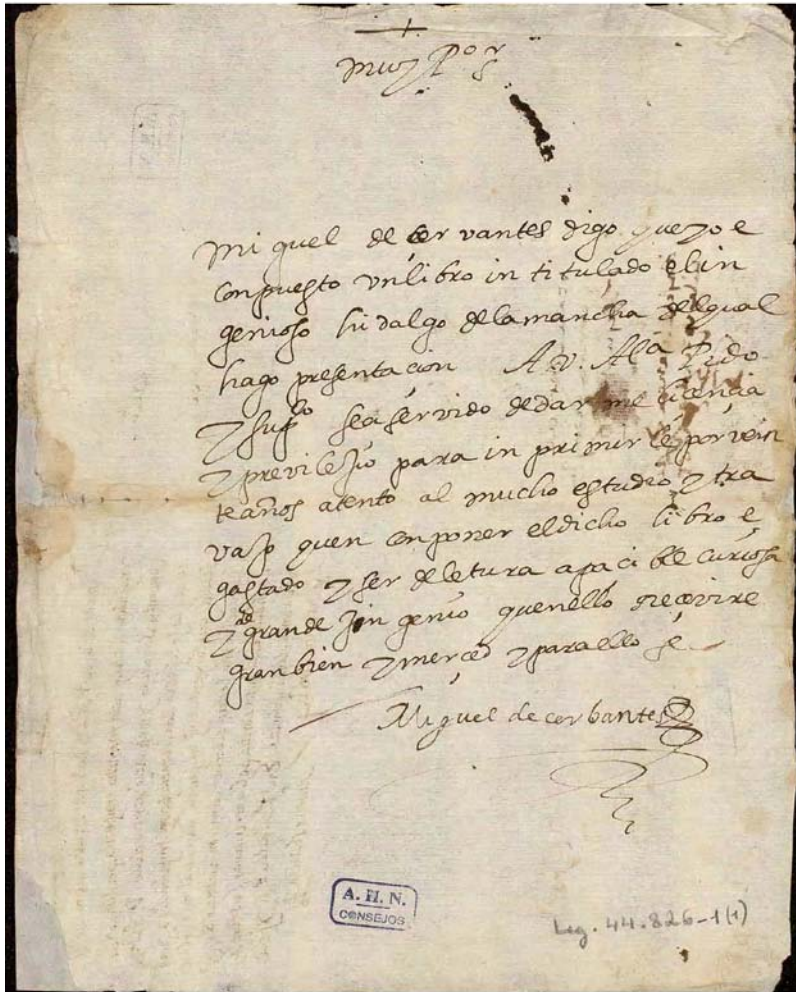 +
muy P.or s
Miguel de cervantes digo que yo e
conpuesto un libro intitulado el in
genioso hidalgo de la mancha del qual
hago presentacion A V. Al.a Pido
y sup.co sea servido de darme licencia
y previlejio para inprimirle por vein
te años atento al mucho estudio y tra
vajo quen conponer el dicho libro e
gastado y ser de letura apacible curiosa
y de grande injenio quenello Recevire
gran bien y merced y para ello &
Miguel de cerbantes
A. H. N.
CONSEJOS
Leg. 44.826-1(1)